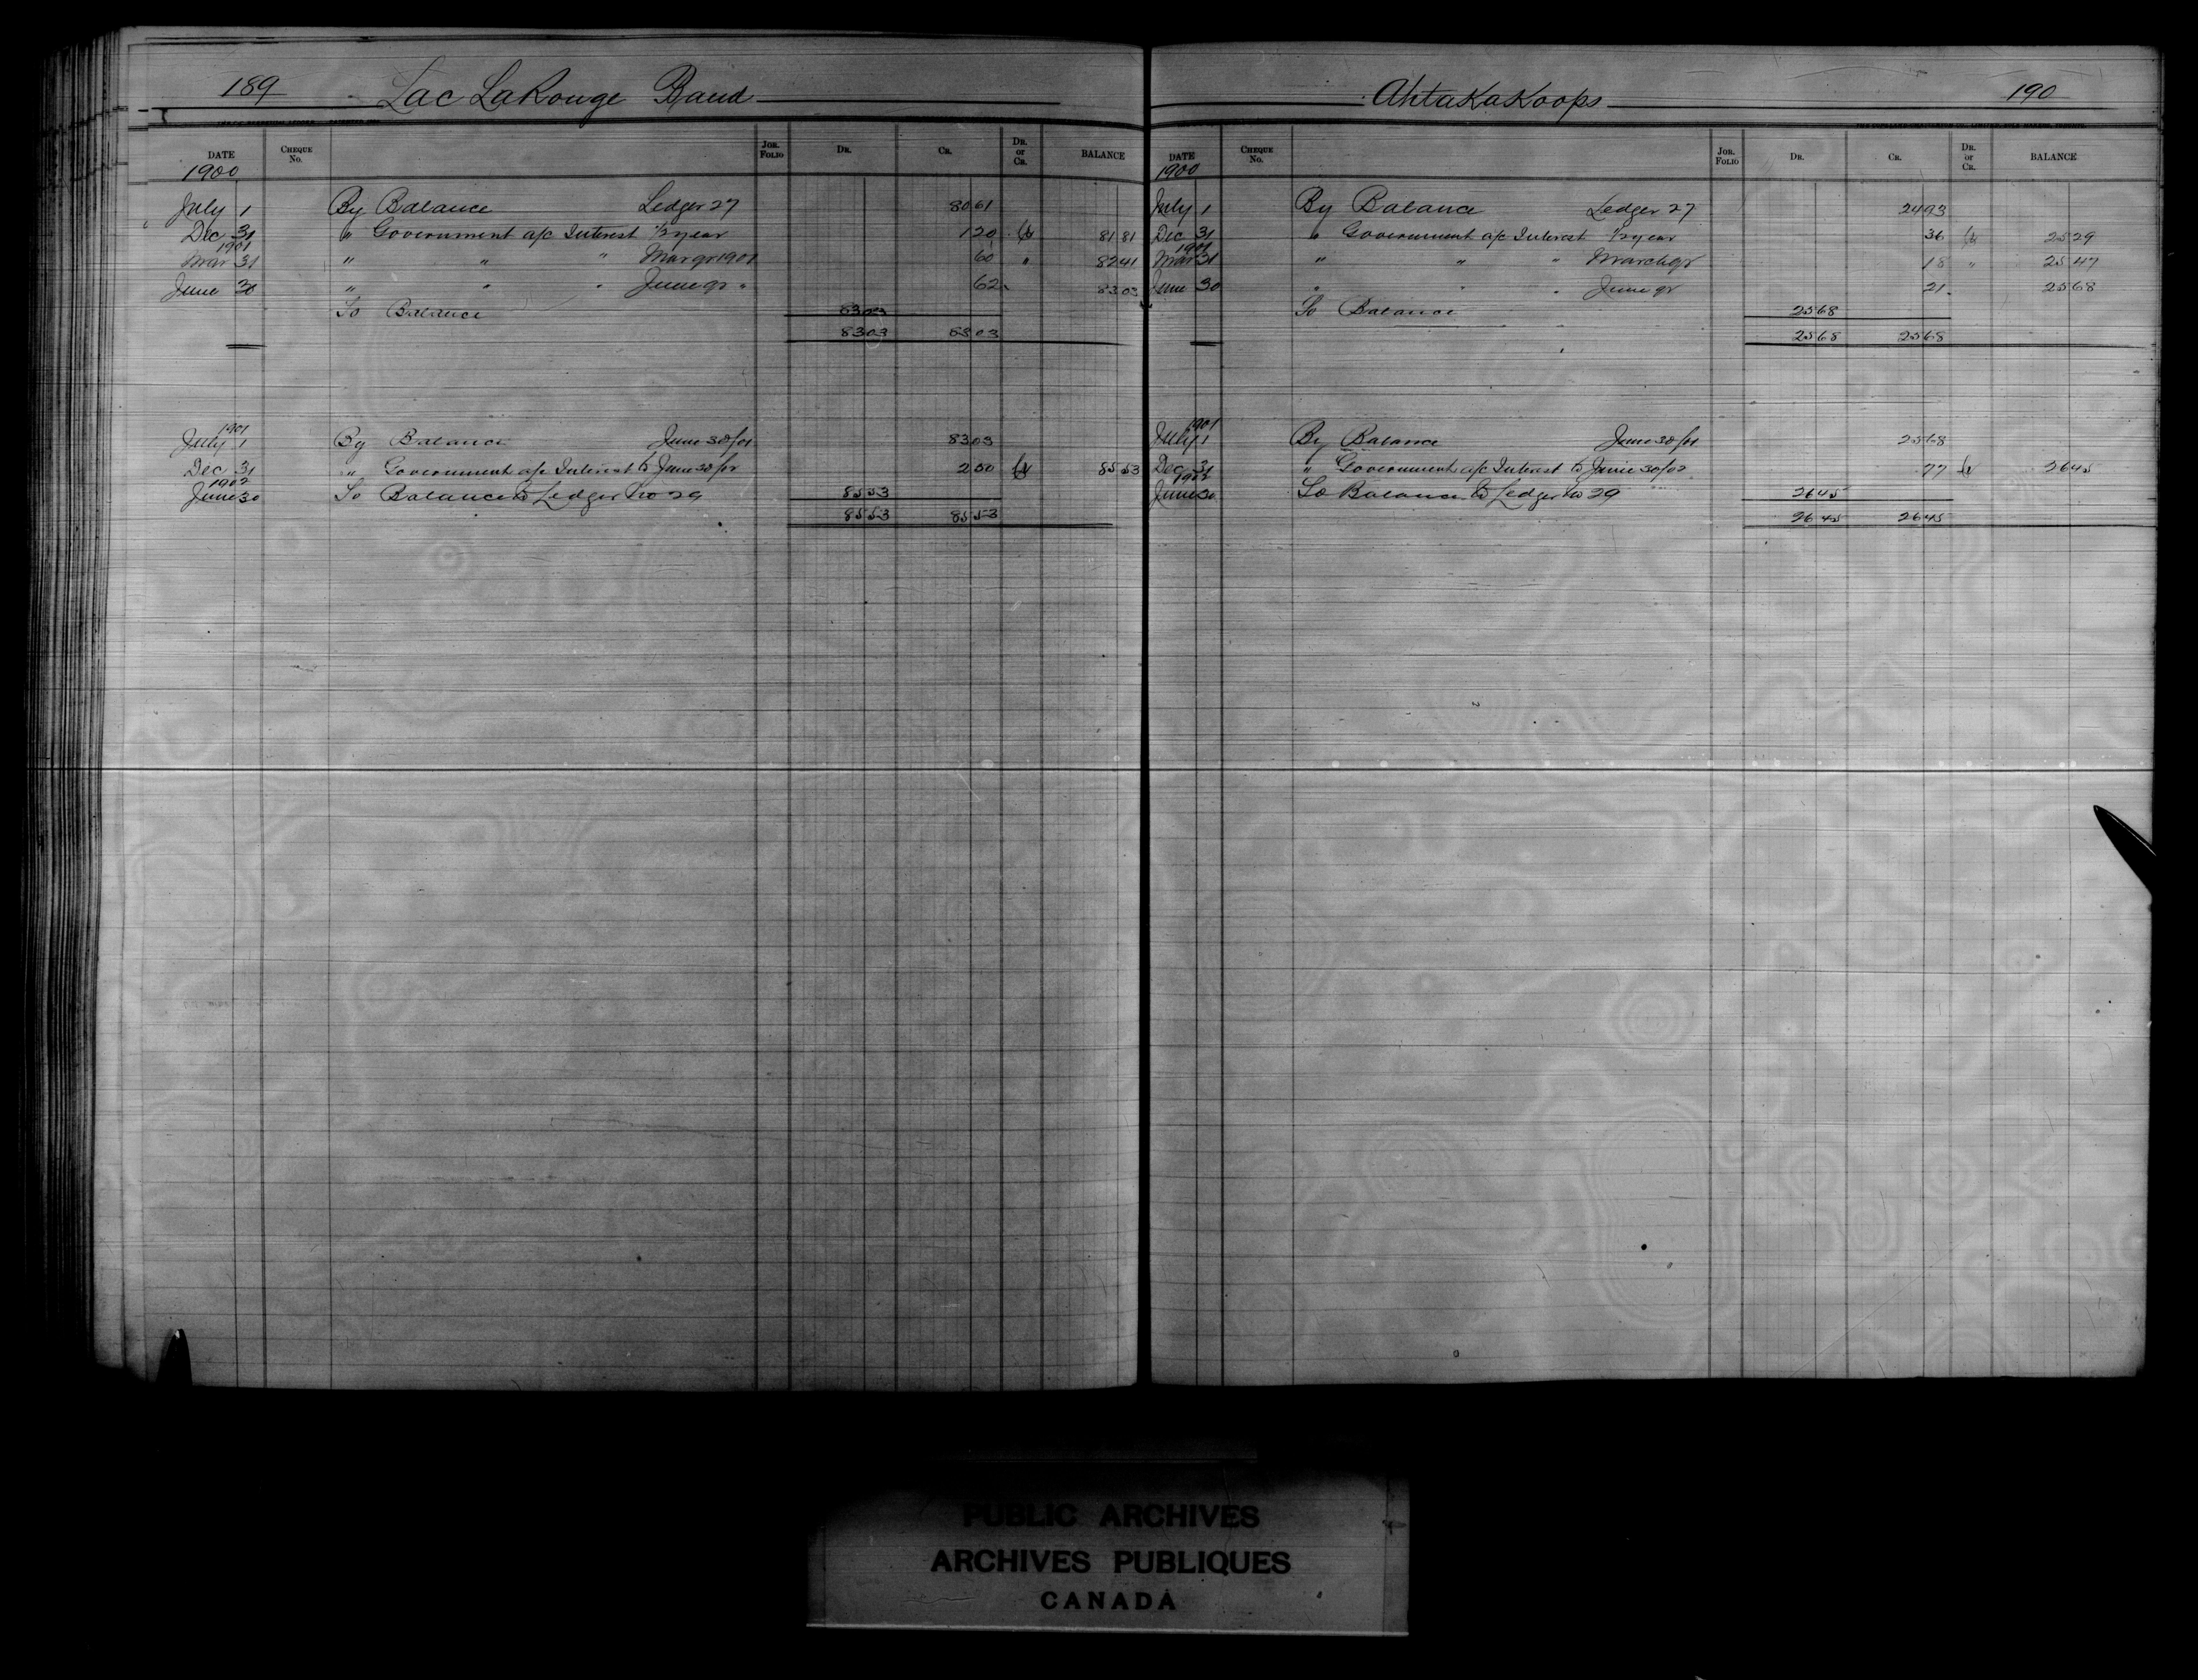 189 Lac LaRouge Band
DATE CHEQUE No. JOR. FOLIO DR. CR. DR. or CR. BALANCE
1900
July 1 By Balance Ledger 27 80 61
Dec 31 " Government a/c Interest 1/2 year 1 20 Cr 81 81
1901
Mar 31 " " " Mar qr 1901 60 " 82 41
June 30 " " " June qr " 62 83 03
To Balance 83 03
83 03 83 03
1901
July 1 By Balance June 30/01 83 03
Dec 31 " Government a/c Interest to June 30/02 2 50 Cr 85 53
1902
June 30 To Balance to Ledger No 29 85 53
85 53 85 53
AhtaKaKoops 190
DATE CHEQUE No. JOR. FOLIO DR. CR. DR. or CR. BALANCE
1900
July 1 By Balance Ledger 27 24 93
Dec 31 " Government a/c Interest 1/2 year 36 Cr 25 29
1901
Mar 31 " " " March qr 18 " 25 47
June 30 " " " June qr 21 25 68
To Balance 25 68
25 68 25 68
1901
July 1 By Balance June 30/01 25 68
Dec 31 " Government a/c Interest to June 30/02 77 Cr 26 45
1902
June 30 To Balance to Ledger No 29 26 45
26 45 26 45
PUBLIC ARCHIVES
ARCHIVES PUBLIQUES
CANADA